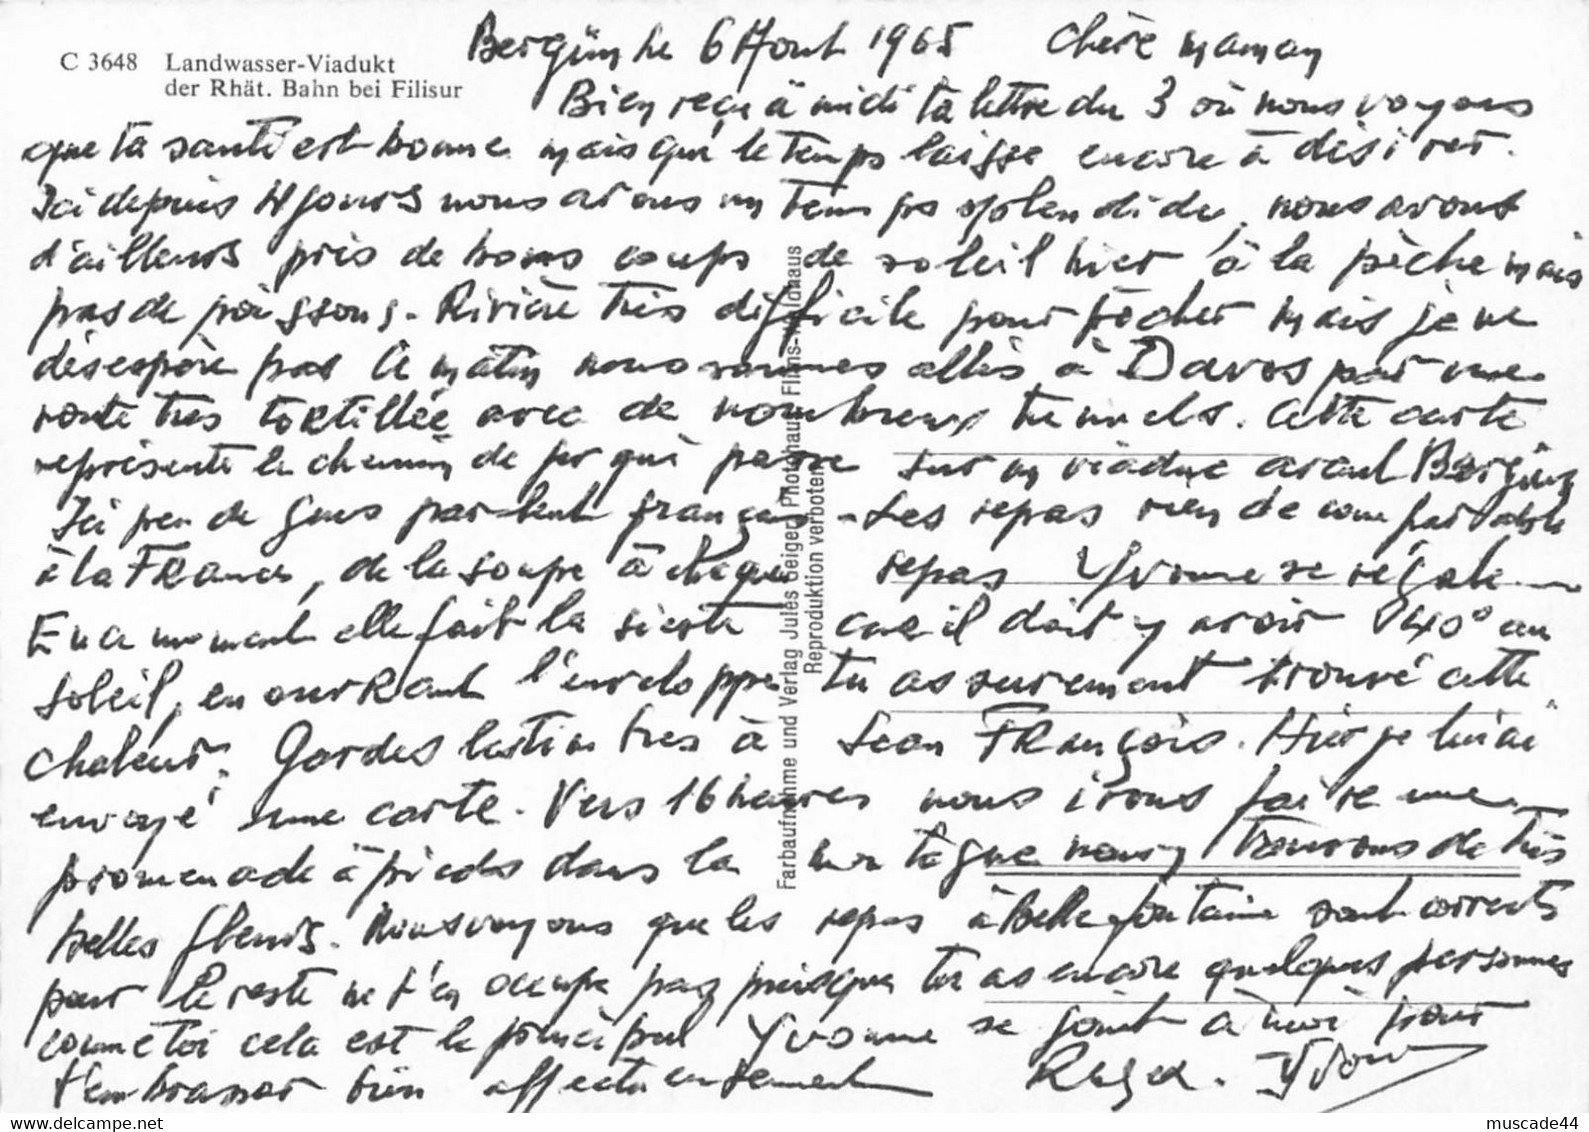 C 3648 Landwasser-Viadukt
der Rhät. Bahn bei Filisur
Bergün le 6 Aout 1965 Chère maman
Bien reçu à midi ta lettre du 3 où nous voyons
que ta santé est bonne mais que le temps laisse encore à désirer.
Ici depuis 4 jours nous avons un temps splendide, nous avons
d'ailleurs pris de bons coups de soleil hier à la pêche mais
pas de poissons. Rivière très difficile pour pêcher mais je ne
désespère pas Ce matin nous sommes allés à Davos par une
route très tortillée avec de nombreux tunnels. Cette carte
représente le chemin de fer qui passe sur un viaduc avant Bergün
Ici peu de gens parlent français - Les repas rien de comparable
à la France, de la soupe à chaque repas Yvonne se régale
En ce moment elle fait la sieste car il doit y avoir 40° au
soleil, en ouvrant l'enveloppe tu as surement trouvé cette
chaleur. Gardes les timbres à Jean François. Hier je lui ai
envoyé une carte. Vers 16 heures nous irons faire une
promenade à pieds dans la montagne nous y trouvons de très
belles fleurs. Nous voyons que les repas à Bellefontaine sont corrects
pour le reste ne t'en occupe pas puisque tu as encore quelques personnes
comme toi cela est le principal Yvonne se joint à moi pour
t'embrasser bien affectueusement Roger. Yvonne
Farbaufnahme und Verlag Jules Geiger, Photohaus, Flims-Waldhaus
Reproduktion verboten
www.delcampe.net
muscade44